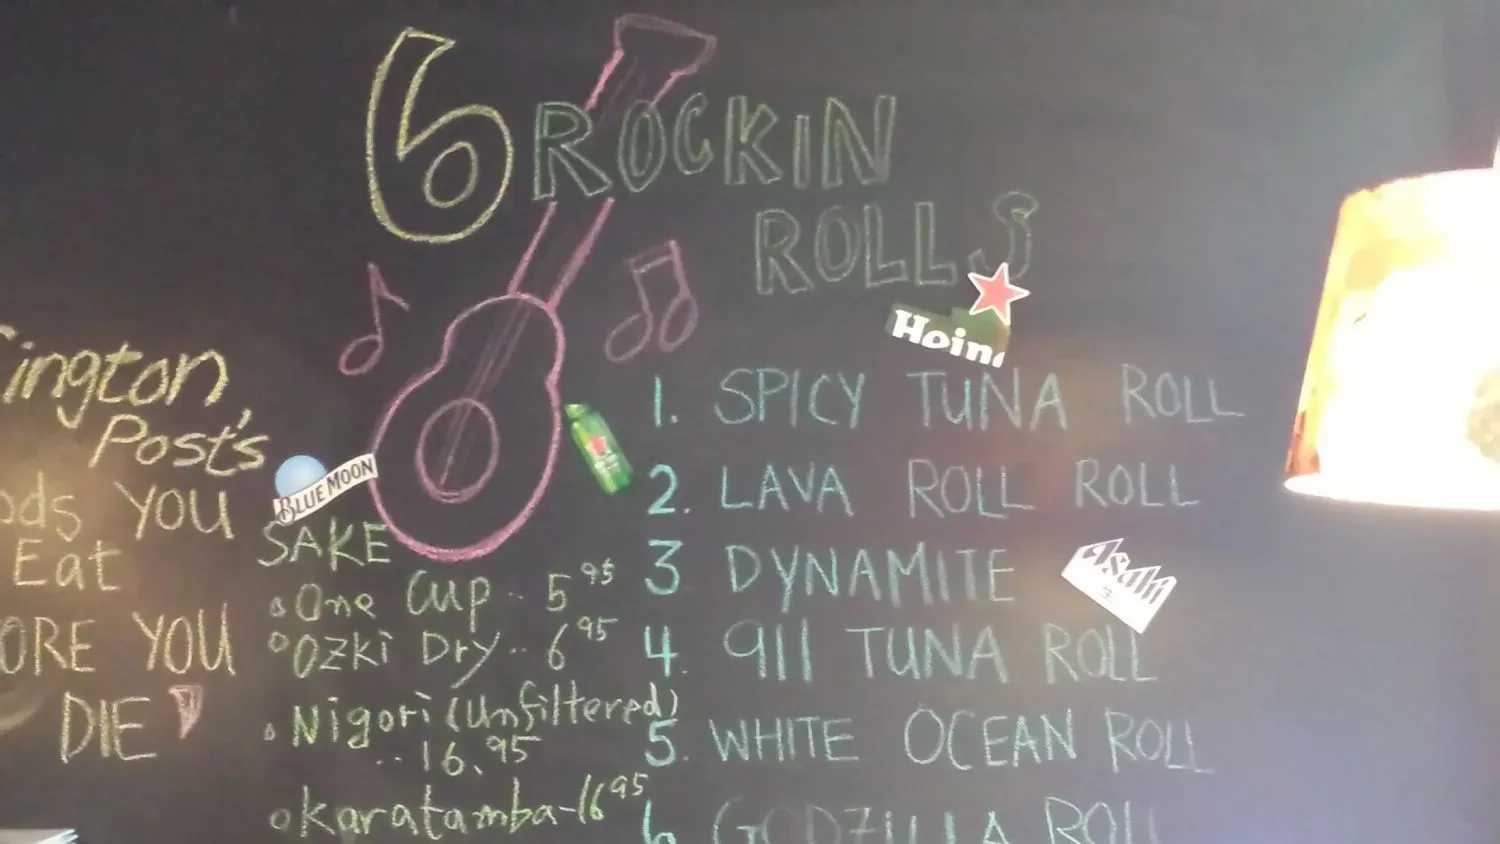 6 ROCKIN
ROLLS
Hein
1. SPICY TUNA ROLL
2. LAVA ROLL ROLL
3 DYNAMITE
Asahi
生
4. 911 TUNA ROLL
5. WHITE OCEAN ROLL
6 GODZILLA ROLL
ington
Post's
ods YOU
Eat
ORE YOU
DIE
BLUE MOON
SAKE
One Cup .. 5 95
Ozki Dry .. 6 95
Nigori (Unfiltered)
.. 16.95
Karatamba - 16 95